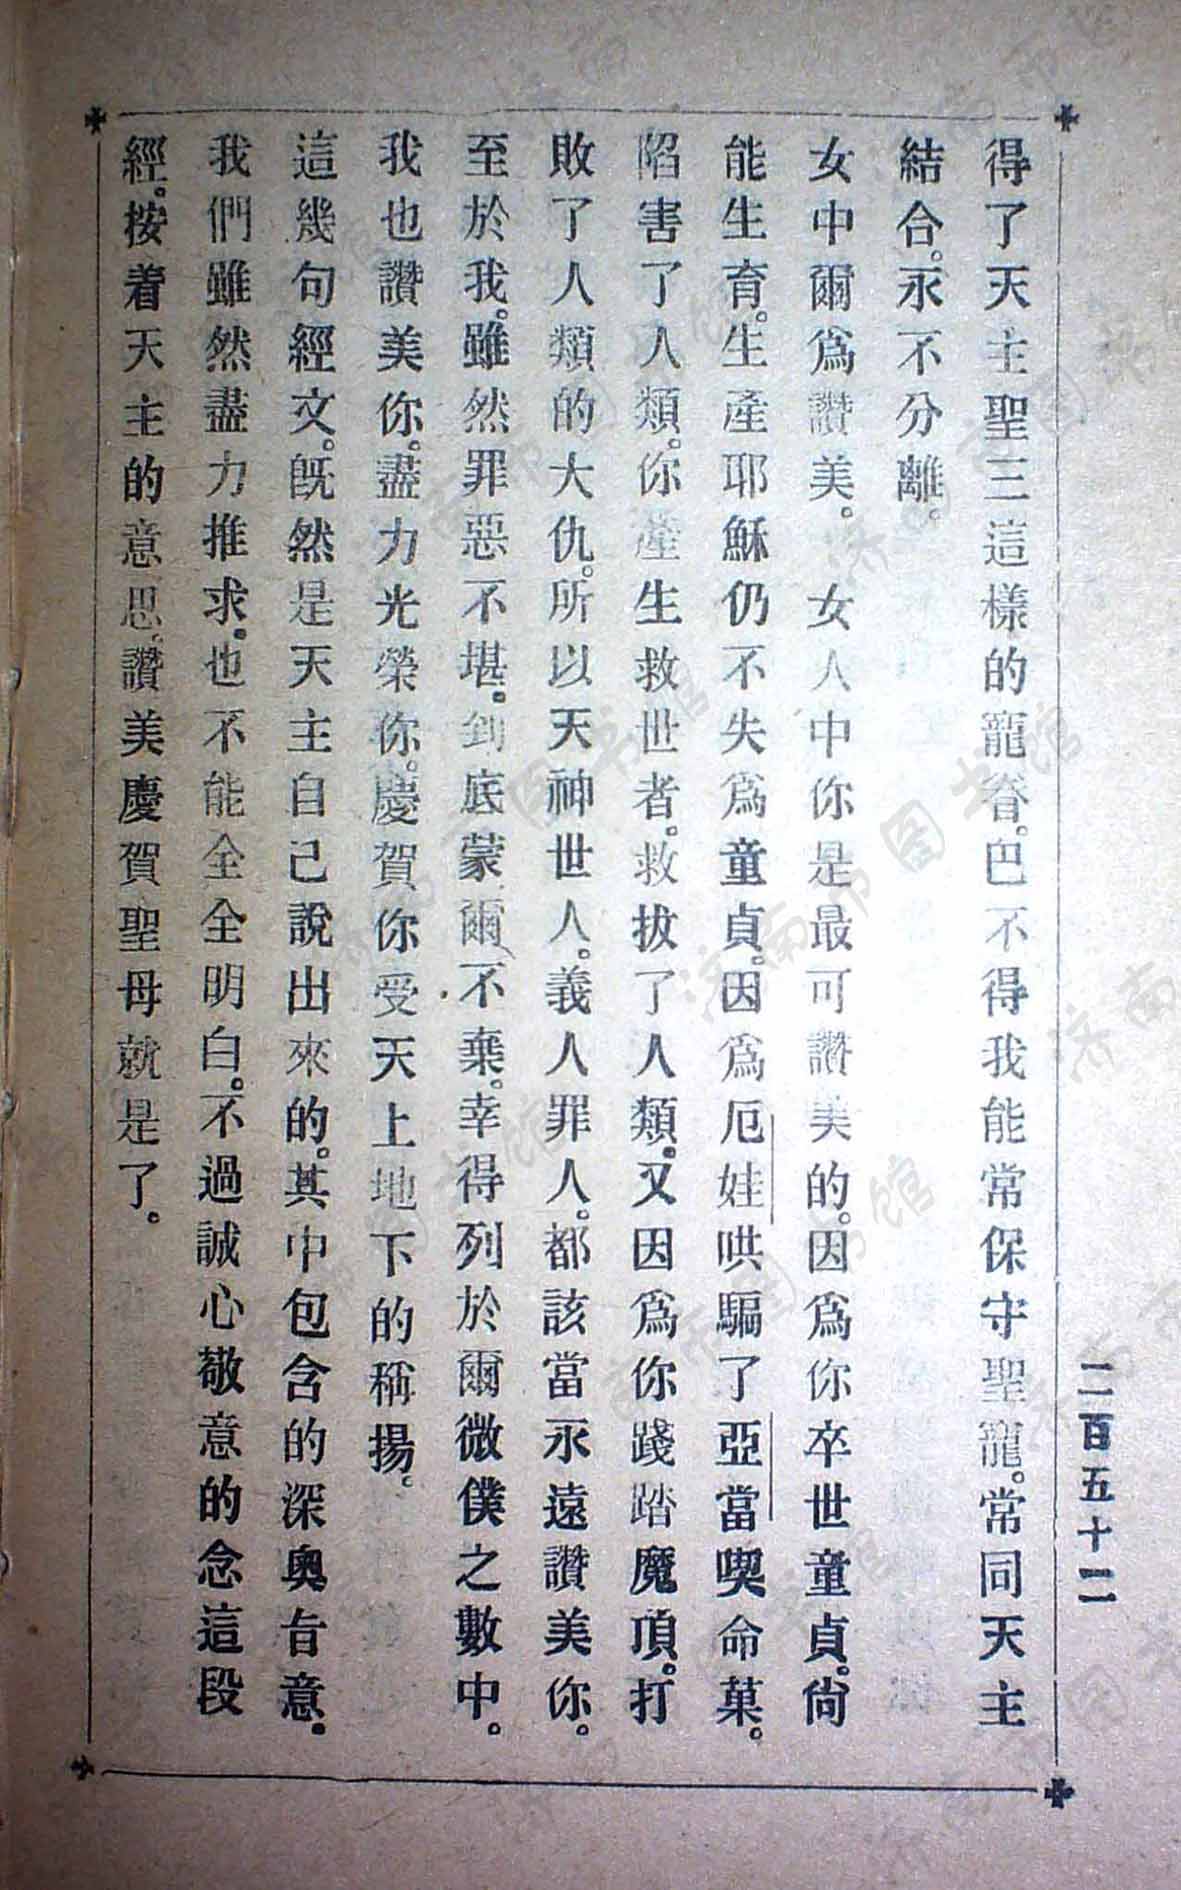 得了天主聖三這樣的寵眷。巴不得我能常保守聖寵。常同天主
結合。永不分離。
女中爾爲讚美。　女人中你是最可讚美的。因爲你卒世童貞。尙
能生育。生產耶穌仍不失爲童貞。因爲厄娃哄騙了亞當喫命菓。
陷害了人類。你產生救世者。救拔了人類。又因爲你踐踏魔頂。打
敗了人類的大仇。所以天神世人。義人罪人。都該當永遠讚美你。
至於我。雖然罪惡不堪。到底蒙爾不棄。幸得列於爾微僕之數中。
我也讚美你。盡力光榮你。慶賀你受天上地下的稱揚。
這幾句經文。旣然是天主自己說出來的。其中包含的深奧旨意。
我們雖然盡力推求。也不能全全明白。不過誠心敬意的念這段
經。按着天主的意思。讚美慶賀聖母就是了。
二百五十二
濟南市图书馆